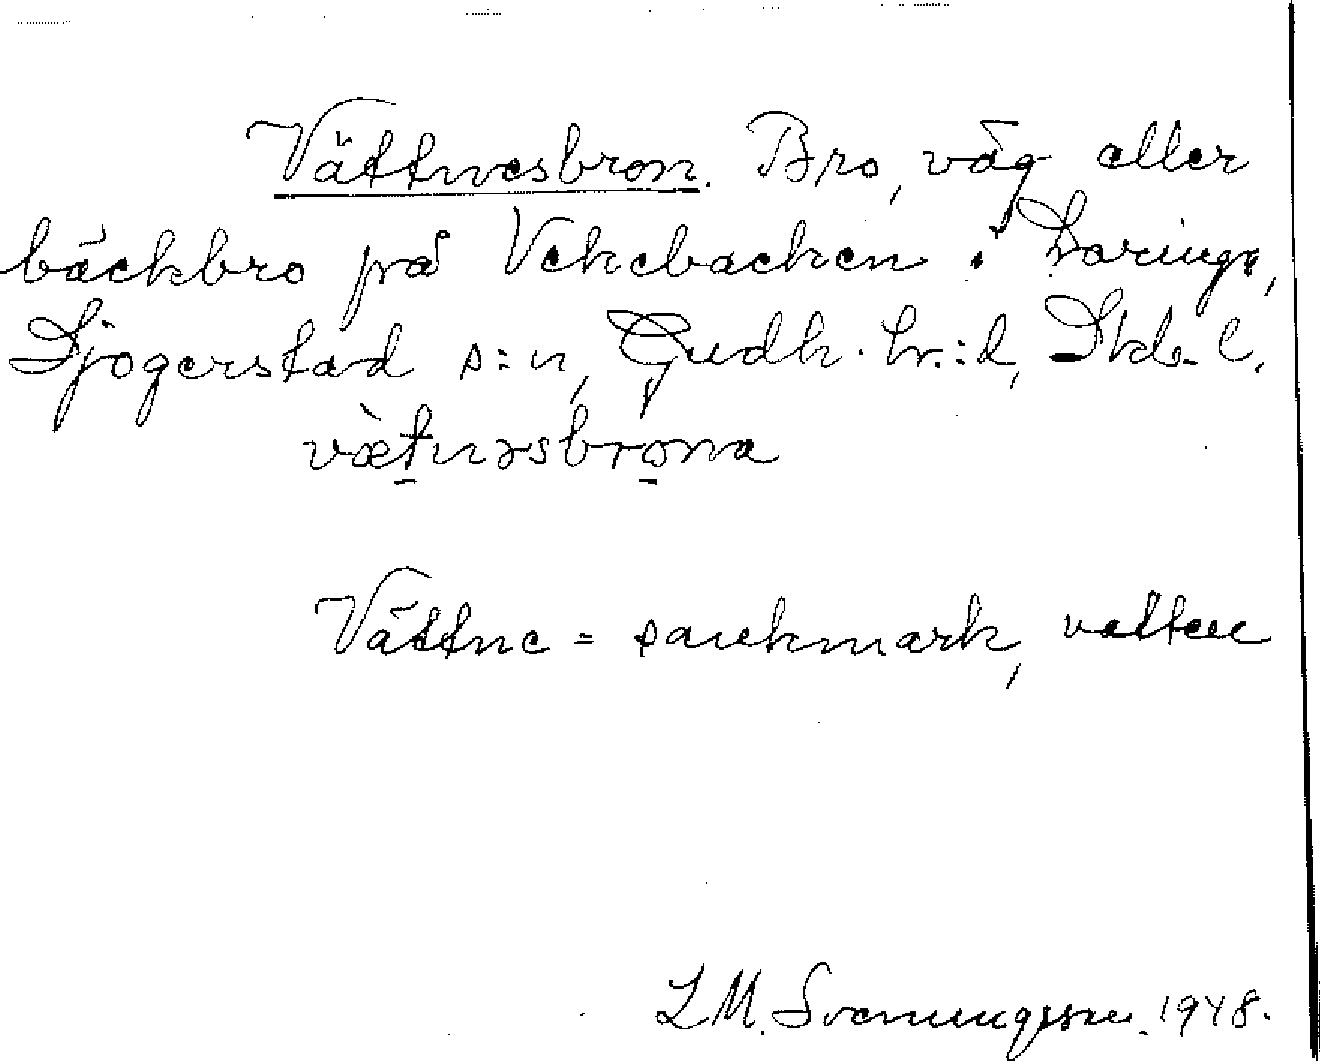 Vättnesbron. Bro, väg eller
bäckbro på Vekebacken i Loringa,
Sjogerstad s:n, Gudh. hr:d, Skb. l.
vætnəsbrona
Vättne = sankmark, vatten
L M. Svenungsson. 1948.